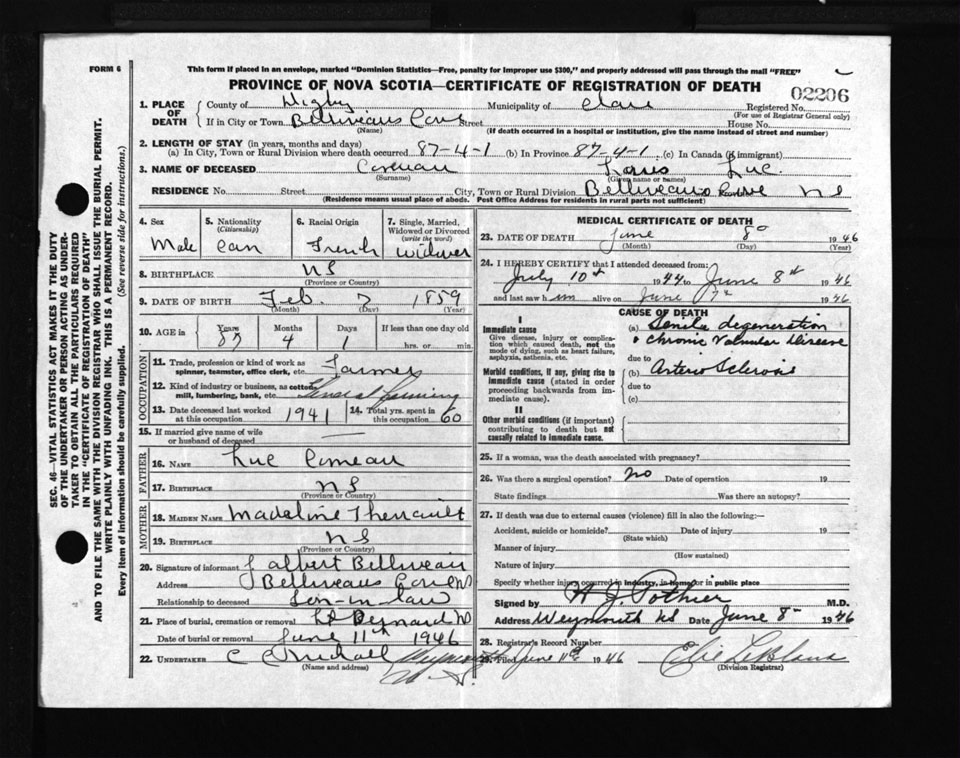 FORM 6
This form if placed in an envelope, marked "Dominion Statistics—Free, penalty for improper use $300," and properly addressed will pass through the mail "FREE"
PROVINCE OF NOVA SCOTIA—CERTIFICATE OF REGISTRATION OF DEATH
02206
1. PLACE OF DEATH
County of Digby Municipality of Clare Registered No.
(For use of Registrar General only)
If in City or Town Belliveaus Cove Street House No.
(Name) (If death occurred in a hospital or institution, give the name instead of street and number)
2. LENGTH OF STAY (in years, months and days)
(a) In City, Town or Rural Division where death occurred 87-4-1 (b) In Province 87-4-1 (c) In Canada (if immigrant)
3. NAME OF DECEASED Comeau Louis Luc
(Surname) (Given name or names)
RESIDENCE No. Street City, Town or Rural Division Belliveaus Cove NS
(Residence means usual place of abode. Post Office Address for residents in rural parts not sufficient)
4. Sex Male
5. Nationality (Citizenship) Can
6. Racial Origin French
7. Single, Married, Widowed or Divorced (write the word) Widower
8. BIRTHPLACE NS
(Province or Country)
9. DATE OF BIRTH Feb. 7 1859
(Month) (Day) (Year)
10. AGE in Years Months Days If less than one day old
87 4 1 hrs. or min.
OCCUPATION
11. Trade, profession or kind of work as spinner, teamster, office clerk, etc. Farmer
12. Kind of industry or business, as cotton mill, lumbering, bank, etc. General farming
13. Date deceased last worked at this occupation 1941
14. Total yrs. spent in this occupation 60
15. If married give name of wife or husband of deceased —
FATHER
16. NAME Luc Comeau
17. BIRTHPLACE NS
(Province or Country)
MOTHER
18. MAIDEN NAME Madeline Theriault
19. BIRTHPLACE NS
(Province or Country)
20. Signature of informant J albert Belliveau
Address Belliveaus Cove NS
Relationship to deceased Son-in-law
21. Place of burial, cremation or removal St Bernard NS
Date of burial or removal June 11th 1946
22. UNDERTAKER C Weymouth N.S.
(Name and address)
MEDICAL CERTIFICATE OF DEATH
23. DATE OF DEATH June 8 1946
(Month) (Day) (Year)
24. I HEREBY CERTIFY that I attended deceased from:
July 10th 1944 to June 8th 1946
and last saw him alive on June 7th 1946
CAUSE OF DEATH
I
Immediate cause
Give disease, injury or complication which caused death, not the mode of dying, such as heart failure, asphyxia, asthenia, etc.
(a) Senile degeneration
& Chronic Valvular Disease
due to
Morbid conditions, if any, giving rise to immediate cause (stated in order proceeding backwards from immediate cause).
(b) Arterio Sclerosis
due to
(c)
II
Other morbid conditions (if important) contributing to death but not causally related to immediate cause.
25. If a woman, was the death associated with pregnancy?
26. Was there a surgical operation? No Date of operation 19
State findings Was there an autopsy?
27. If death was due to external causes (violence) fill in also the following:—
Accident, suicide or homicide? Date of injury 19
(State which)
Manner of injury
(How sustained)
Nature of injury
Specify whether injury occurred in industry, in home or in public place
Signed by H J. Pothier M.D.
Address Weymouth NS Date June 8 1946
28. Registrar's Record Number
29. Filed June 11th 1946 Elie LeBlanc
(Division Registrar)
SEC. 46—VITAL STATISTICS ACT MAKES IT THE DUTY
OF THE UNDERTAKER OR PERSON ACTING AS UNDER-
TAKER TO OBTAIN ALL THE PARTICULARS REQUIRED
IN THE "CERTIFICATE OF REGISTRATION OF DEATH"
AND TO FILE THE SAME WITH THE DIVISION REGISTRAR WHO SHALL ISSUE THE BURIAL PERMIT.
WRITE PLAINLY WITH UNFADING INK. THIS IS A PERMANENT RECORD.
Every item of information should be carefully supplied. (See reverse side for instructions.)